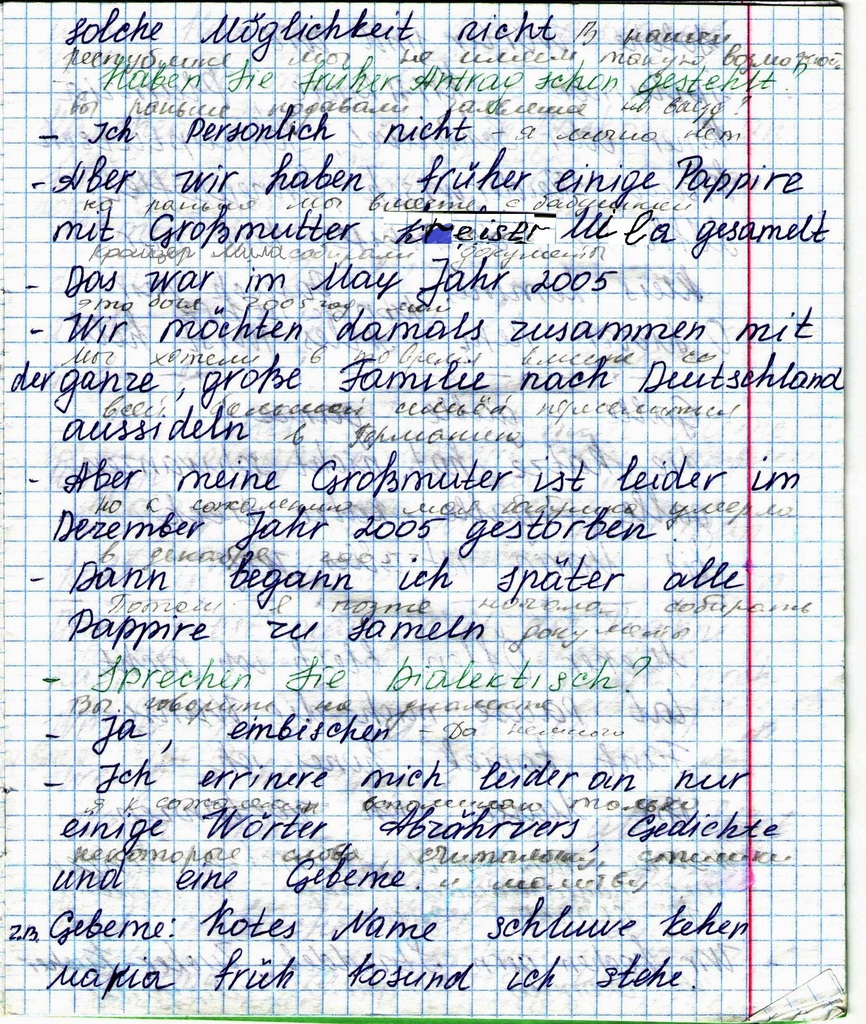 solche Möglichkeit nicht В нашей
республике мы не имеем такую возможность
Haben Sie früher Antrag schon gestehlt.
Вы раньше подавали заявление на визу?
- Ich Personlich nicht - я лично нет
- Aber wir haben früher einige Pappire
но раньше мы вместе с бабушкой
mit Großmutter kreistr Mila gesamelt
Мила собирали документы
- Das war im May Jahr 2005
это был 2005 год май
- Wir möchten damals zusammen mit
мы хотели в то время вместе со
der ganze, große Familie nach Deutschland
всей большой семьёй переселиться
aussideln в Германию
- Aber meine Großmuter ist leider im
но к сожалению моя бабушка умерла
Dezember Jahr 2005 gestorben
в декабре 2005
- Dann begann ich später alle
Потом я позже начала собирать
Pappire zu sameln документы
- Sprechen Sie Dialektisch?
Вы говорите на диалекте
- Ja, einbischen - Да немного
- Ich errinere mich leider an nur
я к сожалению вспоминаю только
einige Wörter Abzährvers, Gedichte
некоторые слова, считалочку, стишки
und eine Gebeme. и молитву
z.B. Gebeme: Kotes Name schluwe kehen
мария früh kosund ich stehe.